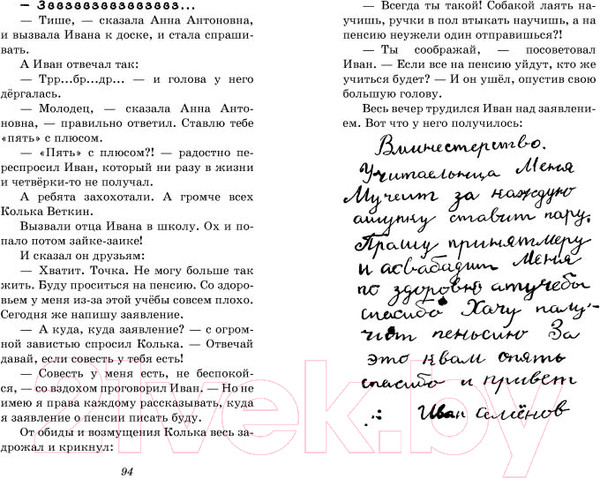 — Зввввввввввввввв...
— Тише, — сказала Анна Антоновна,
и вызвала Ивана к доске, и стала спраши-
вать.
А Иван отвечал так:
— Трр...бр...др... — и голова у него
дёргалась.
— Молодец, — сказала Анна Анто-
новна, — правильно ответил. Ставлю тебе
«пять» с плюсом.
— «Пять» с плюсом?! — радостно пе-
респросил Иван, который ни разу в жизни
и четвёрки-то не получал.
А ребята захохотали. А громче всех
Колька Веткин.
Вызвали отца Ивана в школу. Ох и по-
пало потом зайке-заике!
И сказал он друзьям:
— Хватит. Точка. Не могу больше так
жить. Буду проситься на пенсию. Со здоро-
вьем у меня из-за этой учёбы совсем плохо.
Сегодня же напишу заявление.
— А куда, куда заявление? — с огром-
ной завистью спросил Колька. — Отвечай
давай, если совесть у тебя есть!
— Совесть у меня есть, не беспокой-
ся, — со вздохом проговорил Иван. — Но не
имею я права каждому рассказывать, куда
я заявление о пенсии писать буду.
От обиды и возмущения Колька весь за-
дрожал и крикнул:
94
— Всегда ты такой! Собакой лаять на-
учишь, ручки в пол втыкать научишь, а на
пенсию неужели один отправишься?!
— Ты соображай, — посоветовал
Иван. — Если все на пенсию уйдут, кто же
учиться будет? — И он ушёл, опустив свою
большую голову.
Весь вечер трудился Иван над заявлени-
ем. Вот что у него получилось:
Вминестерство.
Учительница Меня
Мучеит за каждую
ашупку ставит пару.
Прашу принятмеру
и асвабадит Меня
по здоровю атучебы
спасибо Хачу палу-
чит пеньсию За
это квам опять
спасибо и привет
Иван семёнов
21vek.by